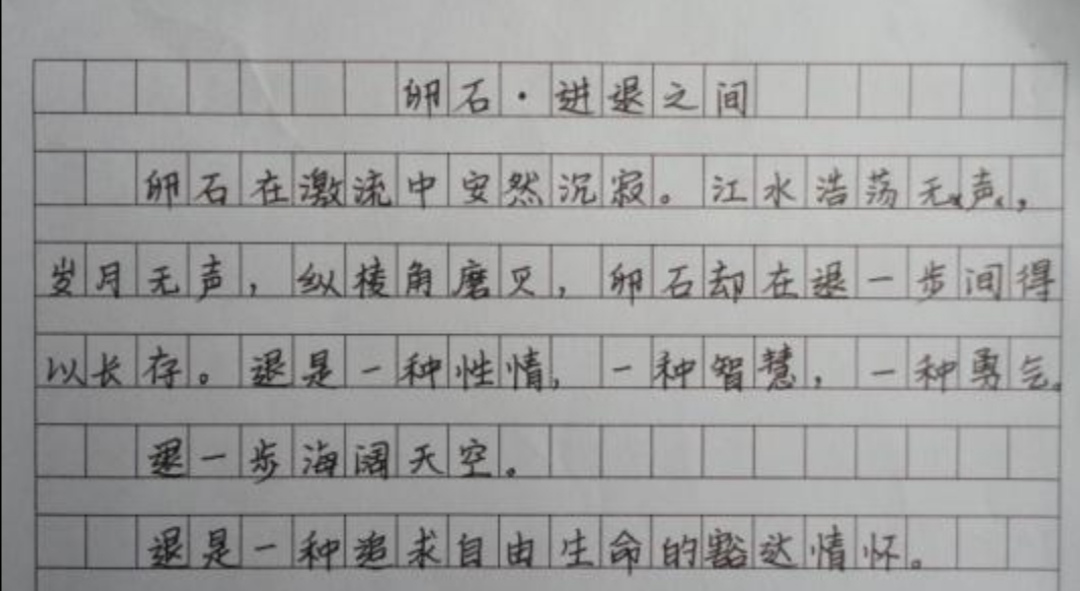 卵石·进退之间
卵石在激流中安然沉寂。江水浩荡无声,
岁月无声,纵棱角磨灭,卵石却在退一步间得
以长存。退是一种性情,一种智慧,一种勇气。
退一步海阔天空。
退是一种追求自由生命的豁达情怀。